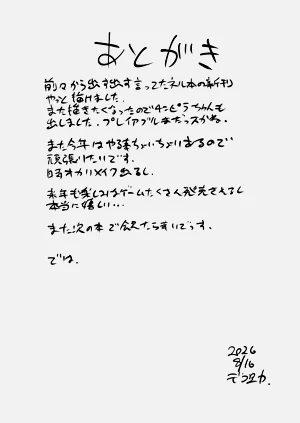 あとがき
前々から出す出す言ってたネル本の新刊
やっと描けました.
また描きたくなったのでチンピラちゃんも
出しました. プレイアブルまだっスかね.
また今年はやる事ちょいちょいあるので
頑張りたいです.
来年も楽しみなゲームたくさん発売されるし
本当に嬉しい…
また次の本で会えたらすいです.
では.
2026
8/16